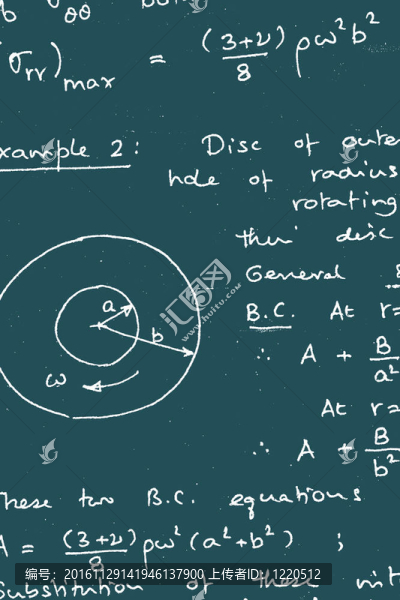 σθθ but
(σrr)max = (3+ν)/8 ρω²b²
xample 2: Disc of oute
hole of radius
rotating
thin disc
General
B.C. At r=
∴ A + B/a²
At r=
∴ A + B/b²
a
b
ω
hese two B.C. equations
A = (3+ν)/8 ρω²(a²+b²) ;
Substitution of these
汇图网
www.huitu.com
编号: 20161129141946137900 上传者ID: 1220512